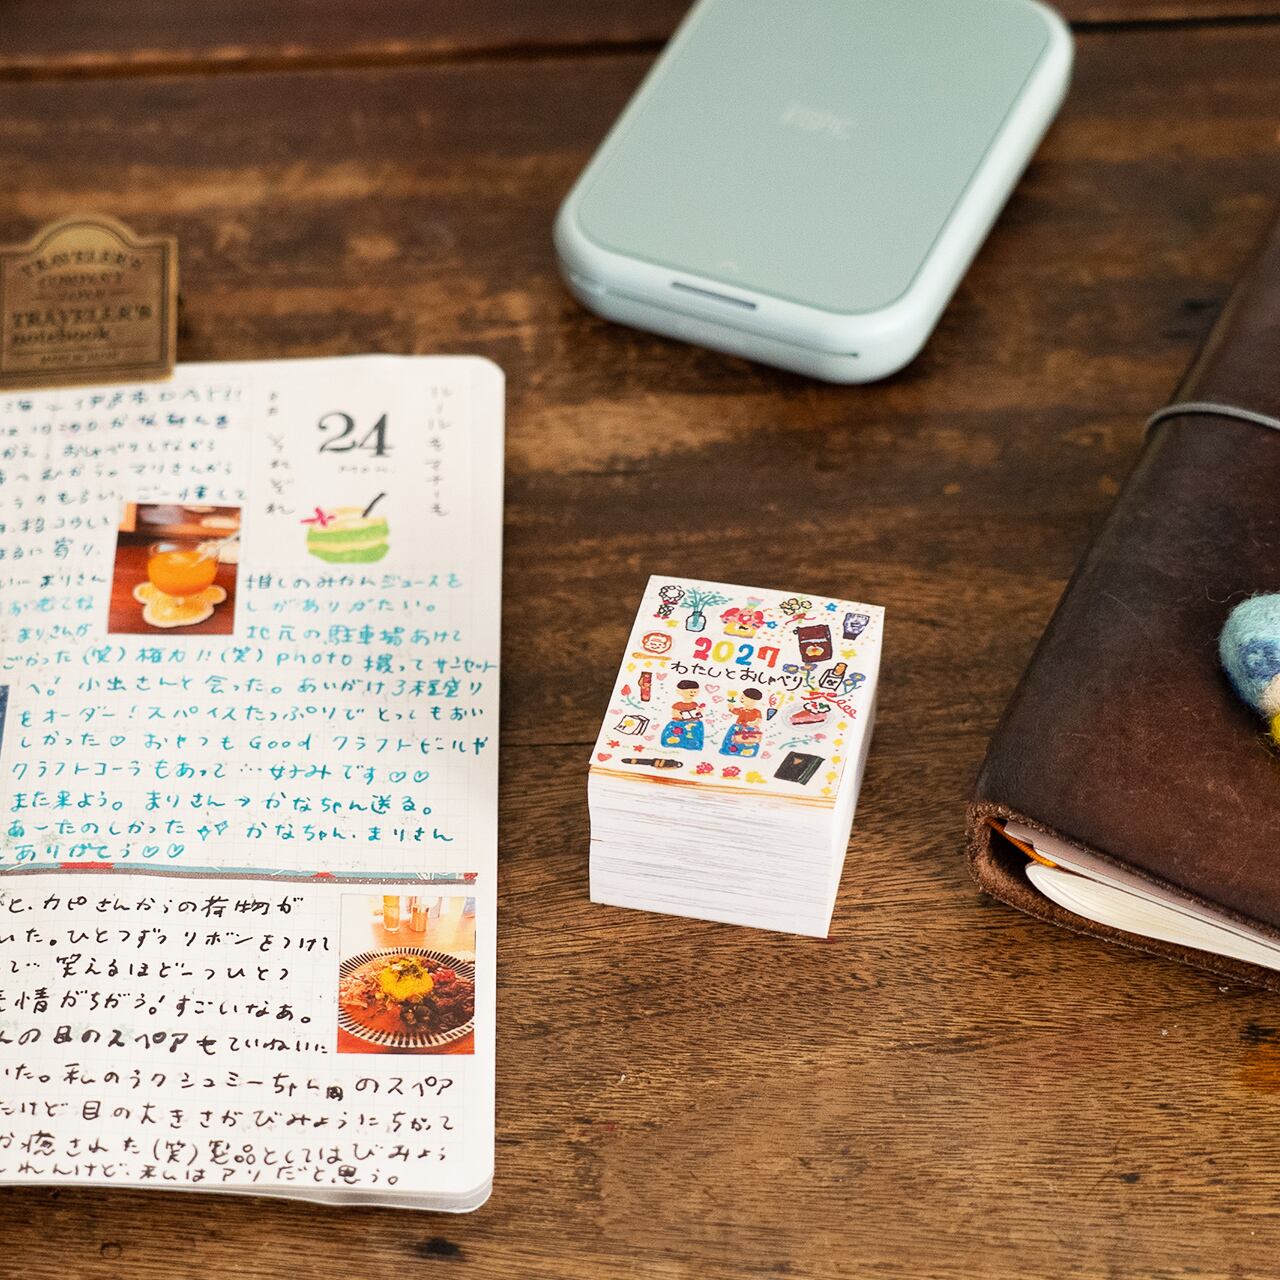 TRAVELER'S
COMPANY
TRAVELER'S
notebook
24
mon.
ルールもマナーも
それぞれ
かえ。おしゃべりしながら
へ向かう。マリさんから
もらい、ご一緒して
に寄り、
まりさん
まりさんが
推しのみかんジュースを
しがありがたい。
地元の駐車場あけて
ごかった(笑)権力!!(笑)photo撮ってサンセット
へ!小出さんと会った。あいがけ3種盛り
をオーダー!スパイスたっぷりでとってもおい
しかった♡おやつもGoodクラフトビールや
クラフトコーラもあって…好みです♡♡
また来よう。まりさん→かなちゃん送る。
あーたのしかった かなちゃん、まりさん
ありがとう♡♡
と、カピさんからの荷物が
いた。ひとつずつリボンをつけて
て…笑えるほど一つひとつ
表情がちがう!すごいなあ。
んの目のスペアもていねいに
いた。私のラクシュミーちゃん のスペア
だけど目の大きさがびみょうにちがって
が癒された(笑)製品としてはびみょう
しれんけど、私はアリだと思う。
2027
わたしとおしゃべり